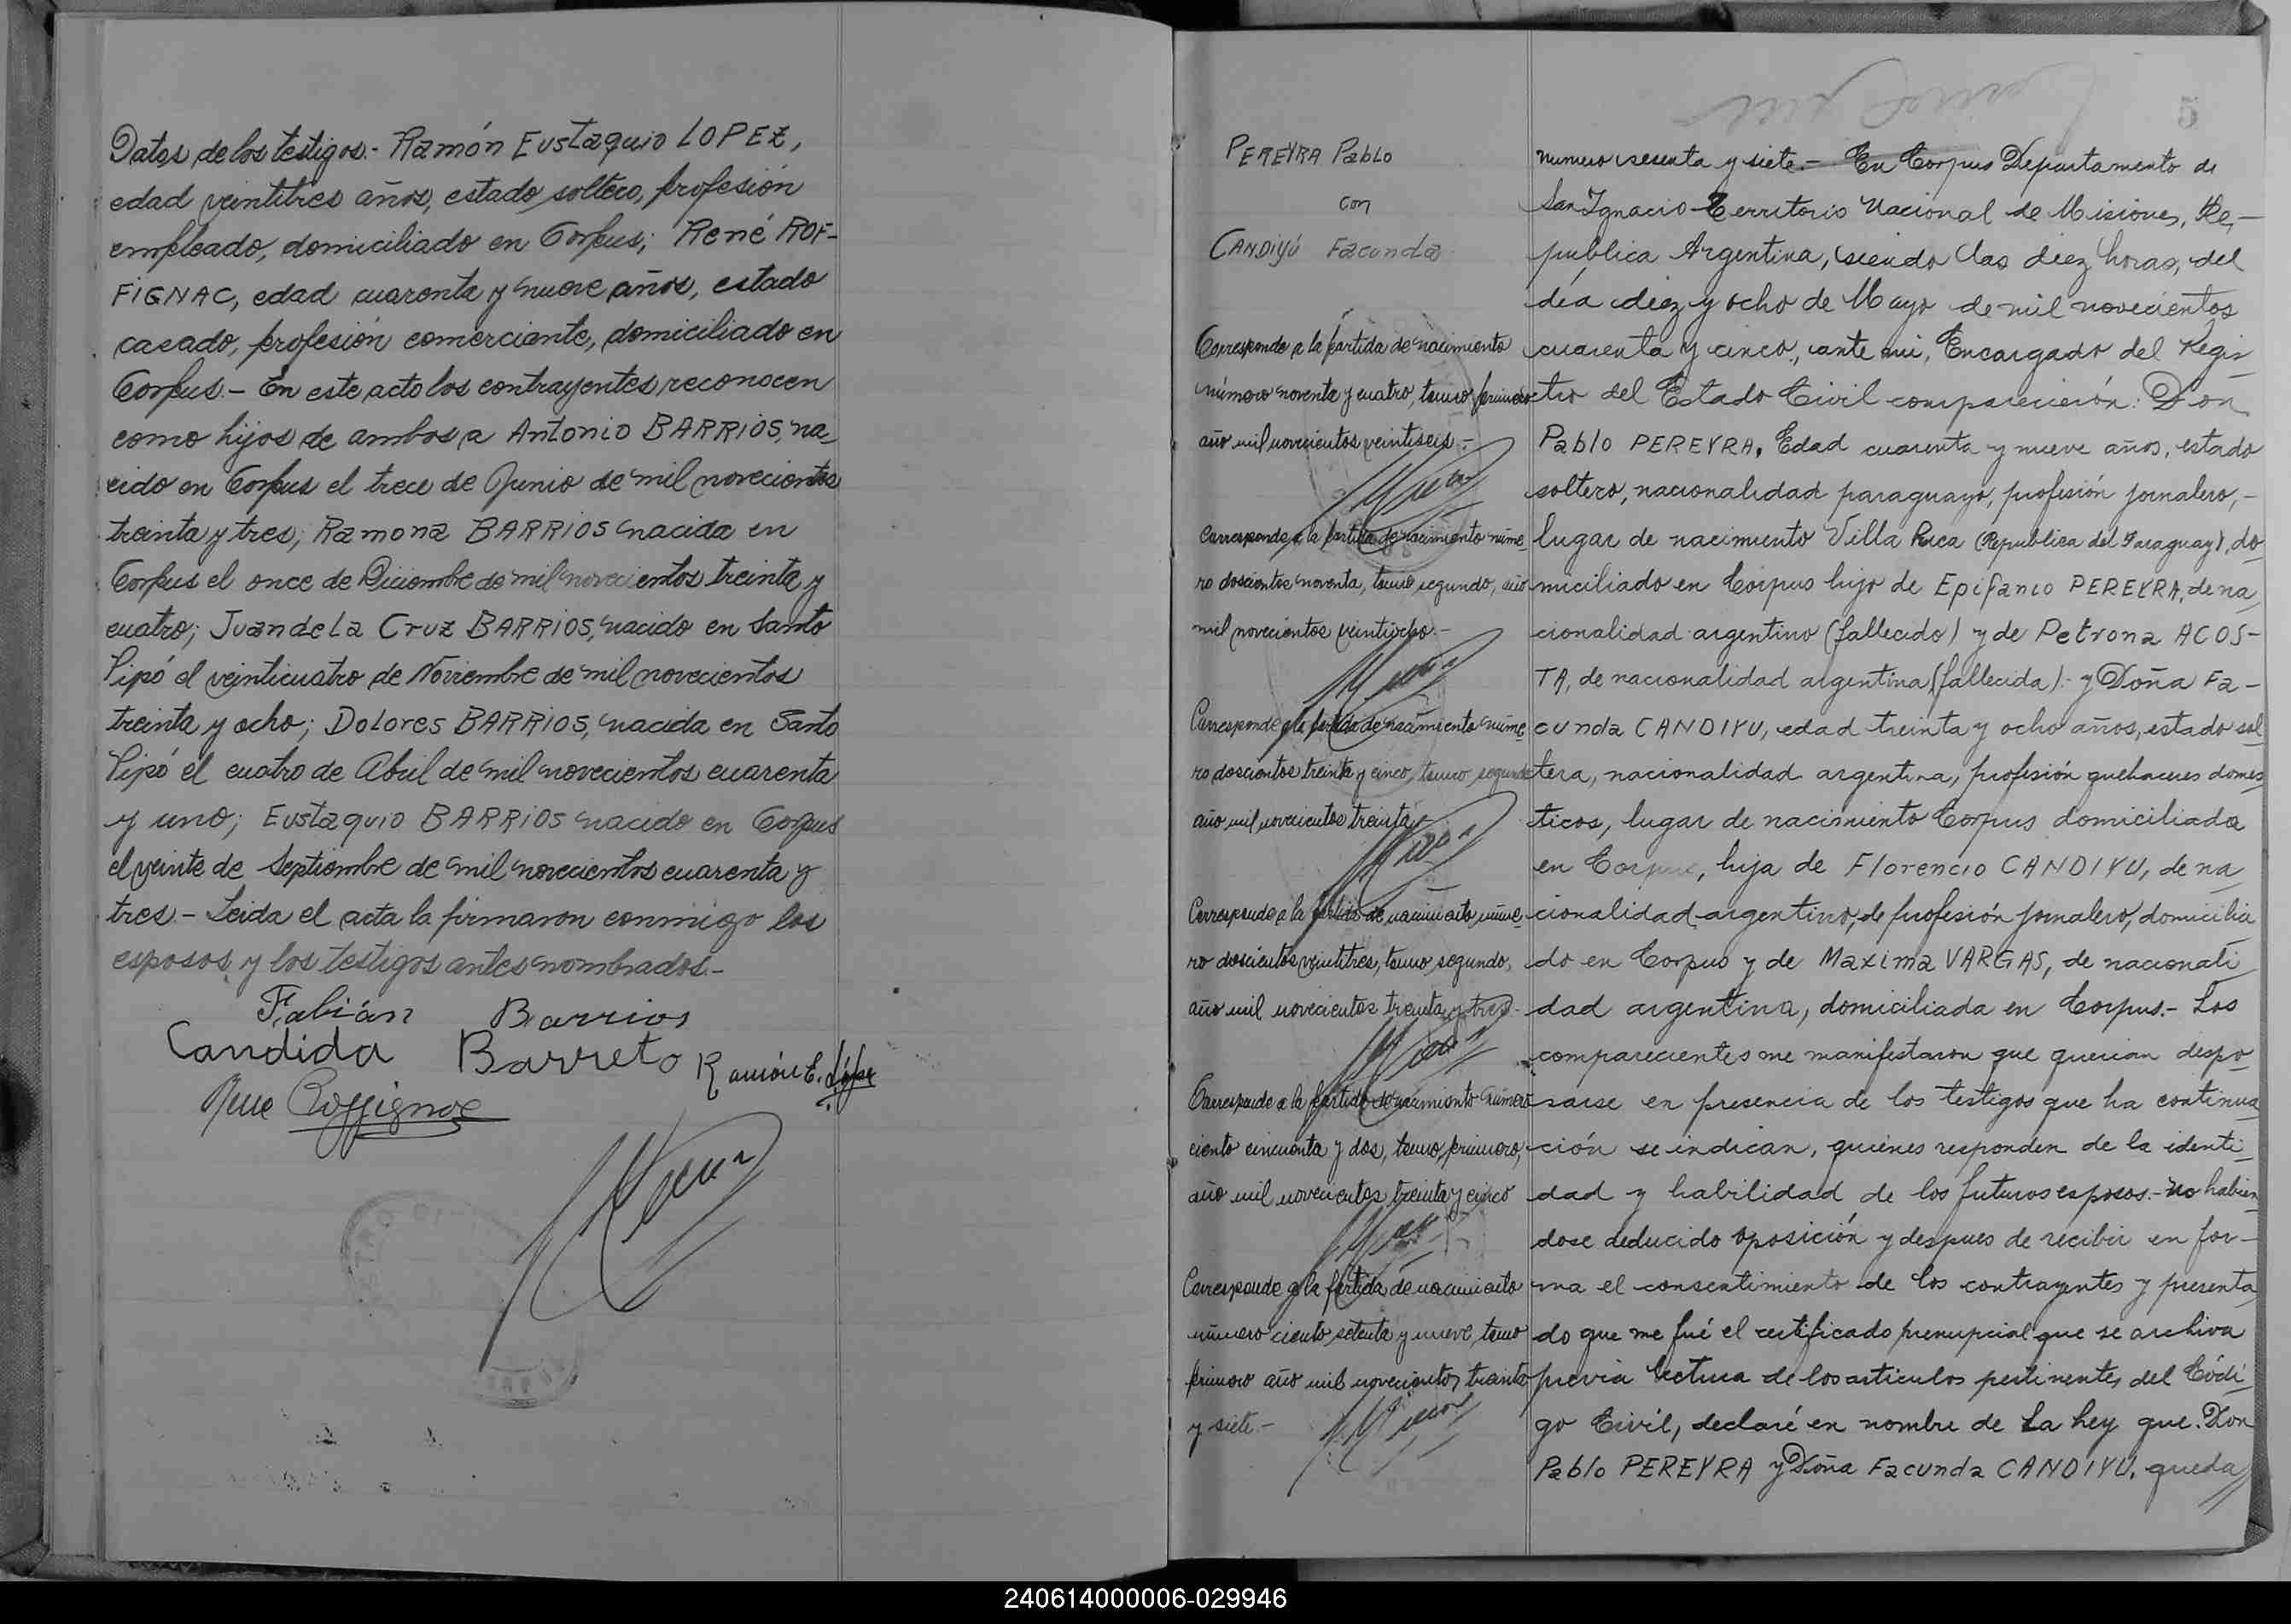 Datos de los testigos.- Ramón Eustaquio LOPEZ,
edad veintitres años, estado soltero, profesión
empleado, domiciliado en Corpus; René ROF-
FIGNAC, edad cuarenta y nueve años, estado
casado, profesión comerciante, domiciliado en
Corpus.- En este acto los contrayentes reconocen
como hijos de ambos a Antonio BARRIOS, na_
cido en Corpus el trece de Junio de mil novecientos
treinta y tres; Ramona BARRIOS nacida en
Corpus el once de Diciembre de mil novecientos treinta y
cuatro; Juan de La Cruz BARRIOS, nacido en Santo
Pipó el veinticuatro de Noviembre de mil novecientos
treinta y ocho; Dolores BARRIOS, nacida en Santo
Pipó el cuatro de Abril de mil novecientos cuarenta
y uno; Eustaquio BARRIOS nacido en Corpus
el veinte de Septiembre de mil novecientos cuarenta y
tres.- Leida el acta la firmaron conmigo los
esposos y los testigos antes nombrados.-
Fabián Barrios
Candida Barreto Ramón E. López
Rene Roffignac
5
PEREYRA Pablo
con
CANDIYÚ Facunda
Corresponde a la partida de nacimiento
número noventa y cuatro, tomo primero
año mil novecientos veintiseis.-
Corresponde a la partida de nacimiento núme_
ro doscientos noventa, tomo segundo, año
mil novecientos veintiocho.-
Corresponde a la partida de nacimiento núme_
ro doscientos treinta y cinco, tomo segundo
año mil novecientos treinta.
Corresponde a la partida de nacimiento núme_
ro doscientos veintitres, tomo segundo,
año mil novecientos treinta y tres.-
Corresponde a la partida de nacimiento número
ciento cincuenta y dos, tomo primero,
año mil novecientos treinta y cinco
Corresponde a la partida de nacimiento
número ciento setenta y nueve, tomo
primero año mil novecientos treinta
y siete.-
numero sesenta y siete.- En Corpus Departamento de
San Ignacio Territorio Nacional de Misiones, Re,-
publica Argentina, siendo las diez horas, del
día diez y ocho de Mayo de mil novecientos
cuarenta y cinco, ante mi, Encargado del Regis_
tro del Estado Civil comparecierón: Don
Pablo PEREYRA. Edad cuarenta y nueve años, estado
soltero, nacionalidad paraguayo, profesión jornalero,-
lugar de nacimiento Villa Rica (Republica del Paraguay), do_
miciliado en Corpus hijo de Epifanio PEREYRA, de na_
cionalidad argentino (fallecido) y de Petrona ACOS-
TA, de nacionalidad argentina (fallecida).- y Doña Fa-
cunda CANDIYU, edad treinta y ocho años, estado sol_
tera, nacionalidad argentina, profesión quehaceres domes_
ticos, lugar de nacimiento Corpus domiciliada
en Corpus, hija de Florencio CANDIYU, de na_
cionalidad argentino, de profesión jornalero, domicilia_
do en Corpus y de Maxima VARGAS, de nacionali_
dad argentina, domiciliada en Corpus.- Los
comparecientes me manifestaron que querian despo_
sarse en presencia de los testigos que ha continua_
ción se indican, quienes responden de la identi_
dad y habilidad de los futuros esposos.- No habien_
dose deducido oposición y despues de recibir en for-
ma el consentimiento de los contrayentes y presenta_
do que me fué el certificado prenupcial que se archiva
previa lectura de los articulos pertinentes del Códi_
go Civil, declaré en nombre de La Ley que. Don
Pablo PEREYRA y Doña Facunda CANDIYU. queda
240614000006-029946